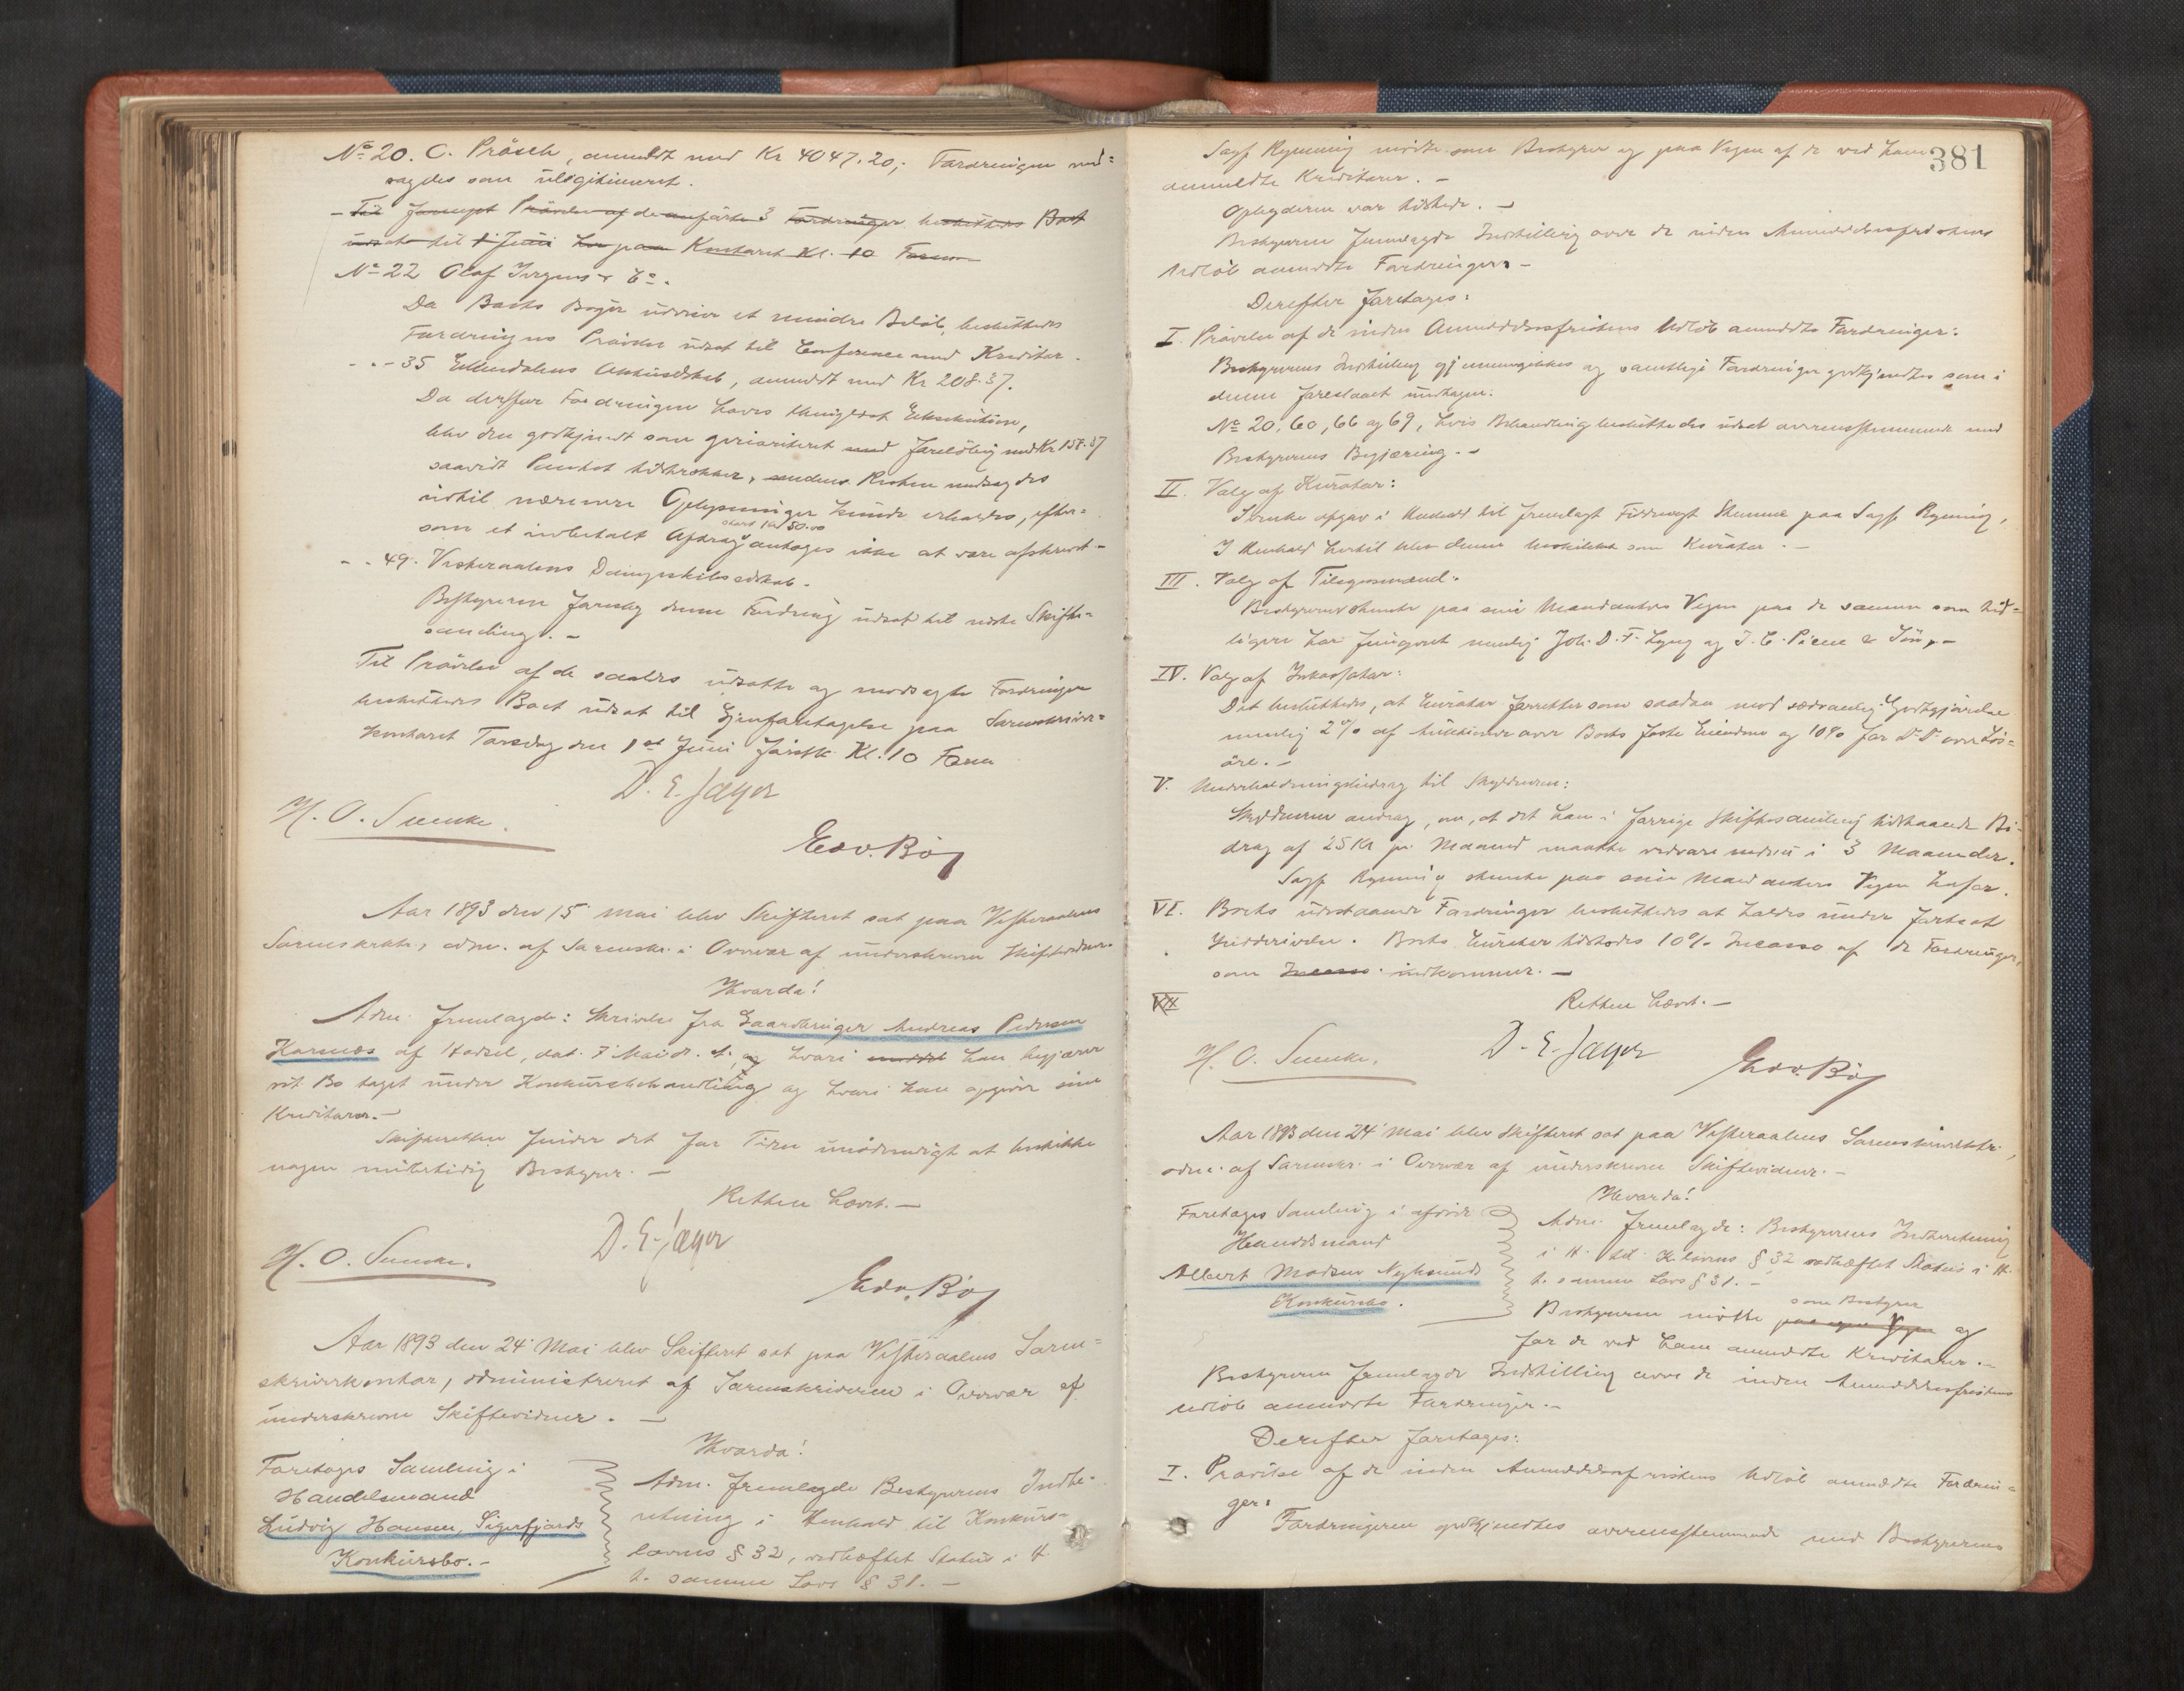 No 20. C. Präsch, anmeldt med Kr 4047.20,; Fordringen mod=
sagdes som ulegitimeret.
- Til Prøvelse af de anførte 3 Fordringer besluttedes Boet
udsat til 1' Juni paa Kontoret Kl. 10 Form
No 22 Olaf Jürgens & Co.
Da Boets Bøger udviser et mindre Beløb, besluttedes
Fordringens Prøvelse udsat til Conference med Kreditor.
- . - 35 Aktieselskab, anmeldt med Kr 208.37.
Da derfor Fordringen haves Eksekution,
blev den godkjendt som prioriteret med foreløbig med Kr 158.37
saavidt Pantet tilstrækker, medens Resten modsagdes
indtil nærmere Oplysninger kunde erholdes, efter=
som et indbetalt Afdrag stort Kr 50.00 antages ikke at være afskrevet -
- . 49. Vesteraalens Dampskibsselskab.
Bestyreren foreslog denne Fordring udsat til næste Skifte=
samling. -
Til Prøvelse af de saaledes udsatte og modsagte Fordringer
besluttedes Boet udsat til Gjenforetagelse paa Sorenskriver=
kontoret Torsdag den 1st Juni førstk. Kl. 10 Form
D. E. Jæger
H. O. Suenke.
Edv. Bøj
Aar 1893 den 15 Mai blev Skifteret sat paa Vesteraalens
Sorenskrktr., adm. af Sorenskr. i Overvær af underskrevne Skiftevidner.
Hvorda!
Adm. fremlagde: Skrivelse fra Gaardbruger Andreas Pedersen
Karnæs af Hadsel, dat. 7 Mai d. A. og hvori han begjærer
sit Bo taget under Konkursbehandling og hvori han opgiver sine
Kreditorer. -
Skifteretten finder det for Tiden unødvendigt at beskikke
nogen midlertidig Bestyrer. -
Retten hævet. -
D. E. Jæger
H. O. Suenke.
Edv. Bøj
Aar 1893 den 24' Mai blev Skifteret sat paa Vesteraalens Soren=
skriverkontor, administreret af Sorenskriveren i Overvær af
underskrevne Skiftevidner. -
Hvorda!
Foretoges Samling i
Handelsmand
Ludvig Hansen, Sigerfjords
Konkursbo. -
Adm. fremlagde Bestyrerens Indbe-
retning i Henhold til Konkurs-
lovens § 32, vedhæftet Status i H.
t. samme Lovs § 31. -
381
Sagf Rynning mødte som Bestyrer og paa Vegne af de ved ham
anmeldte Kreditorer. -
Opbyderen var tilstede. -
Bestyreren fremlagde Indstilling over de inden Anmeldelsesfristens
Udløb anmeldte Fordringer. -
Derefter foretoges:
I. Prøvelse af de inden Anmeldelsesfristens Udløb anmeldte Fordringer:
Bestyrerens Indstilling gjennemgikkes og samtlige Fordringer godkjendtes som i
denne foreslaaet undtagen:
No 20, 60, 66 og 69, hvis Behandling besluttedes udsat overensstemmende med
Bestyrerens Begjæring. -
II. Valg af Kurator:
Suenke afgav i Henhold til fremlagt Fuldmagt Stemme paa Sagf. Rynning,
I Henhold hertil blev denne beskikket som Kurator. -
III. Valg af Tilsynsmænd:
Bestyreren stemte paa sine Mandanters Vegne paa de samme som tid=
ligere har fungeret nemlig Joh. D. F. Lyng og J. C. Piene & Søn, -
IV. Valg af Inkassator:
Det besluttedes, at Kurator forretter som saadan mod sædvanlig Godtgjørelse
nemlig 2% af Auktioner over Boets faste Eiendom og 10% for Do Do over Løs=
øre. -
V. Underholdningsbidrag til Skyldneren:
Skyldneren androg, om, at det ham i forrige Skiftesamling tilstaaede Bi-
drag af 25 Kr pr. Maaned maatte vedvare endnu i 3 Maaneder.
Sagf Rynning stemte paa sine Mandanters Vegne herfor.
VI. Boets udestaaende Fordringer besluttedes at holdes under fortsat
Inddrivelse. Boets Kurator tilstodes 10% Incasso af de Fordringer,
som Incasso indkommer. -
Retten hævet. -
H. O. Suenke.
D. E. Jæger
Edv. Bøj
Aar 1893 den 24' Mai blev Skifteret sat paa Vesteraalens Sorenskriverktr.,
adm. af Sorenskr. i Overvær af underskrevne Skiftevidner. -
Hvorda!
Foretoges Samling i afdøde
Handelsmand
Albert Madsen Nyksunds
Konkursbo.
Adm. fremlagde: Bestyrerens Indberetning
i H. til K.lovens § 32 vedhæftet Status i H.
t. samme Lovs § 31. -
Bestyreren mødte som Bestyrer og
for de ved ham anmeldte Kreditorer. -
Bestyreren fremlagde Indstilling over de inden Anmeldelsesfristens
Udløb anmeldte Fordringer. -
Derefter foretoges:
I. Prøvelse af de inden Anmeldelsesfristens Udløb anmeldte Fordrin=
ger:
Fordringerne godkjendtes overensstemmende med Bestyrerens